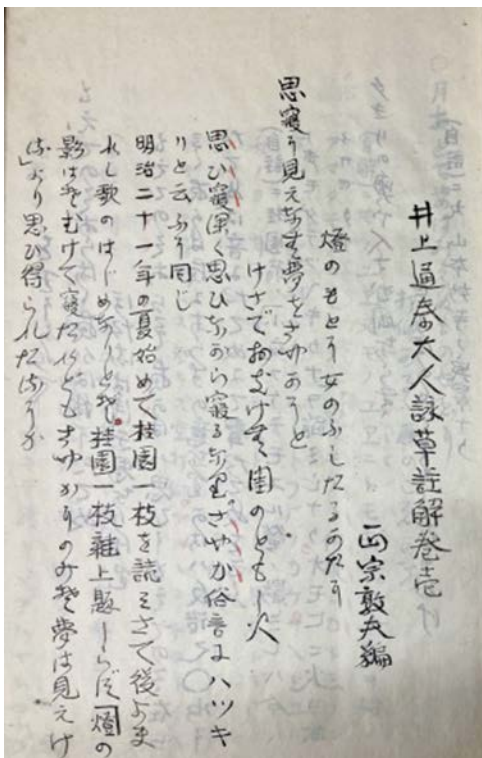 井上通泰大人詠草註解巻壱
正宗敦夫編
燈のもとに女のふしたるかたに
思寝に見えなむ夢をさやかにと
けさでおむけむ閨のともし火
思ひ寝深く思ひながら寝るなり さやか俗言にハツキ
リと云ふに同じ
明治二十一年の夏始めて桂園一枝を読みて後よま
れし歌のはじめなりとぞ 桂園一枝雑上題しらず「燈の
影はそむけて寝たれどもさやかにのみぞ夢は見えけ
る」より思ひ得られたるにか